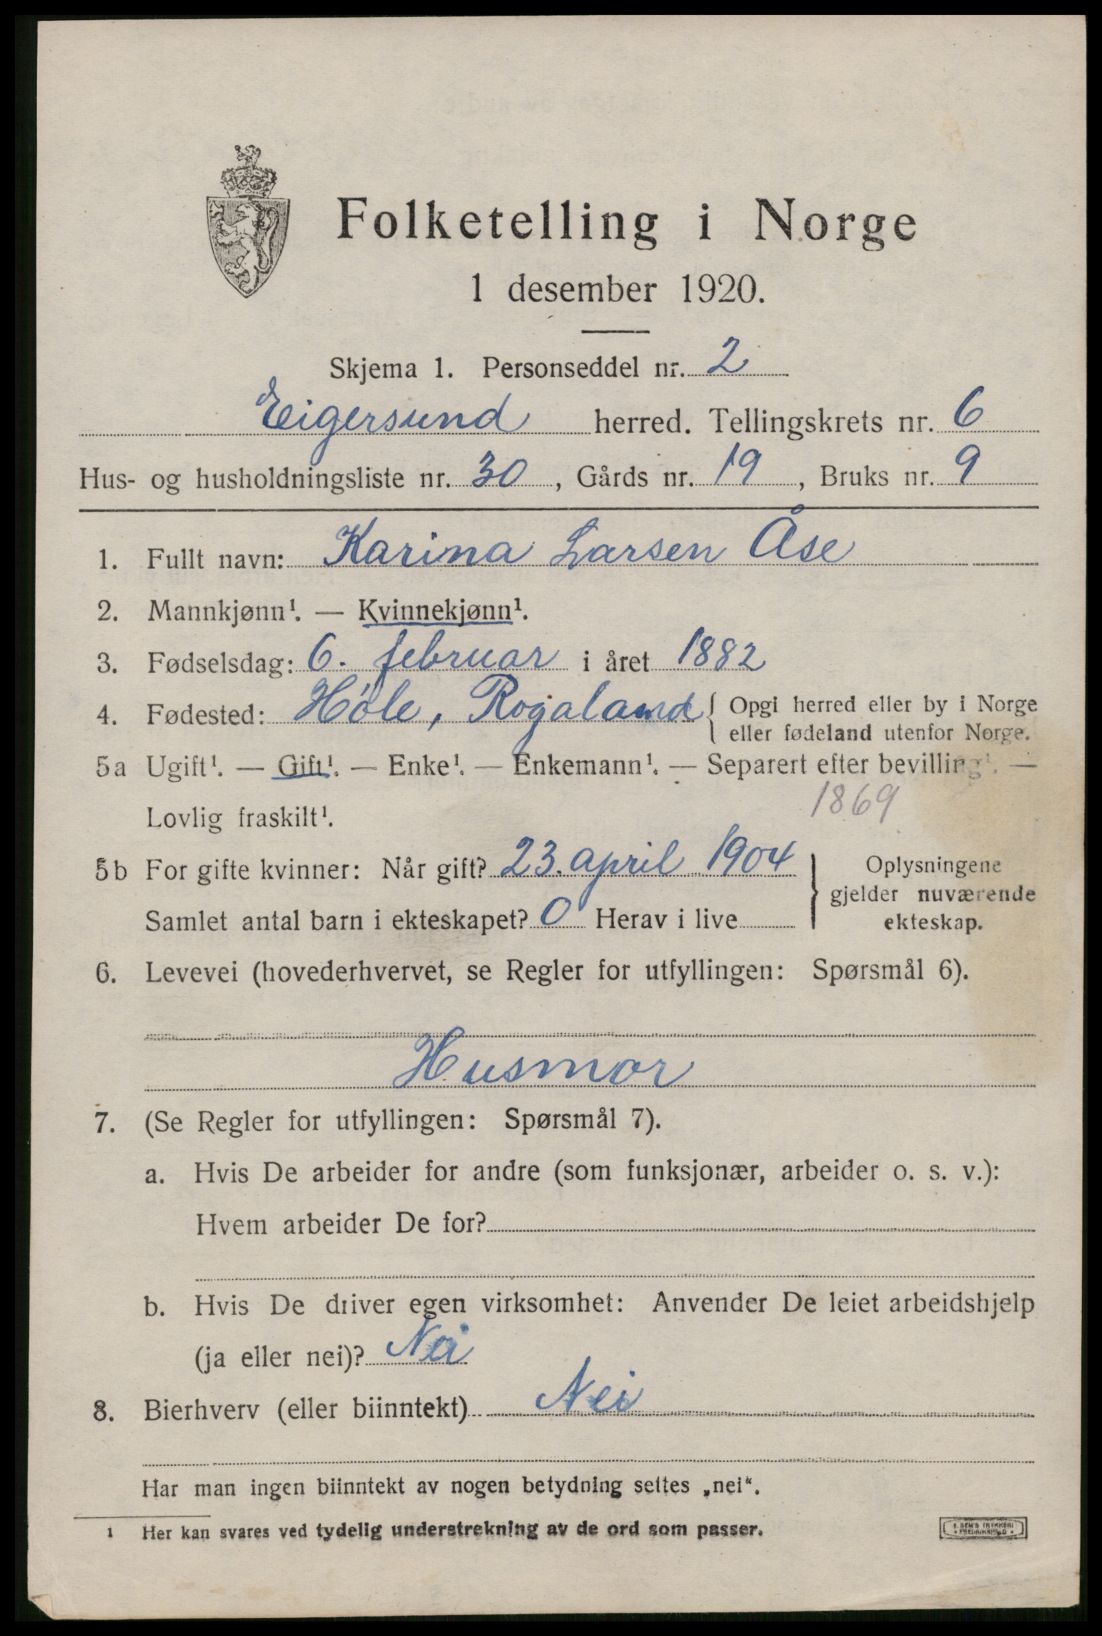 Folketelling i Norge
1 desember 1920.
Skjema 1. Personseddel nr. 2
Eigersund herred. Tellingskrets nr. 6
Hus- og husholdningsliste nr. 30, Gårds nr. 19, Bruks nr. 9
1. Fullt navn: Karina Larsen Åse
2. Mannkjønn¹. — Kvinnekjønn¹.
3. Fødselsdag: 6. februar i året 1882
4. Fødested: Høle, Rogaland { Opgi herred eller by i Norge
eller fødeland utenfor Norge.
5a Ugift¹. — Gift¹. — Enke¹. — Enkemann¹. — Separert efter bevilling¹. —
1869
Lovlig fraskilt¹.
5b For gifte kvinner: Når gift? 23. april 1904
Samlet antal barn i ekteskapet? 0 Herav i live
} Oplysningene
gjelder nuværende
ekteskap.
6. Levevei (hovederhvervet, se Regler for utfyllingen: Spørsmål 6).
Husmor
7. (Se Regler for utfyllingen: Spørsmål 7).
a. Hvis De arbeider for andre (som funksjonær, arbeider o. s. v.):
Hvem arbeider De for?
b. Hvis De driver egen virksomhet: Anvender De leiet arbeidshjelp
(ja eller nei)? Nei
8. Bierhverv (eller biinntekt) Nei
Har man ingen biinntekt av nogen betydning settes „nei“.
1 Her kan svares ved tydelig understrekning av de ord som passer.